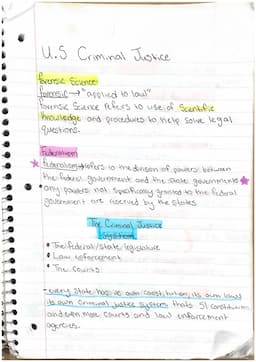 U.S Criminal Justice
Forensic Science
forensic → "applied to law"
Forensic Science refers to use of Scientific
knowledge and procedures to help solve legal
questions.
Federalism
federalism → refers to the division of powers between
the federal government and the state governments
• any powers not specifically granted to the federal
government are reserved by the states
The Criminal Justice
System
• The federal/state legislature
• Law enforcement
• The Courts
• every State has its own constitution, its own laws
its own Criminal justice system thats 51 constitutions
and even more courts and law enforcement
agencies.